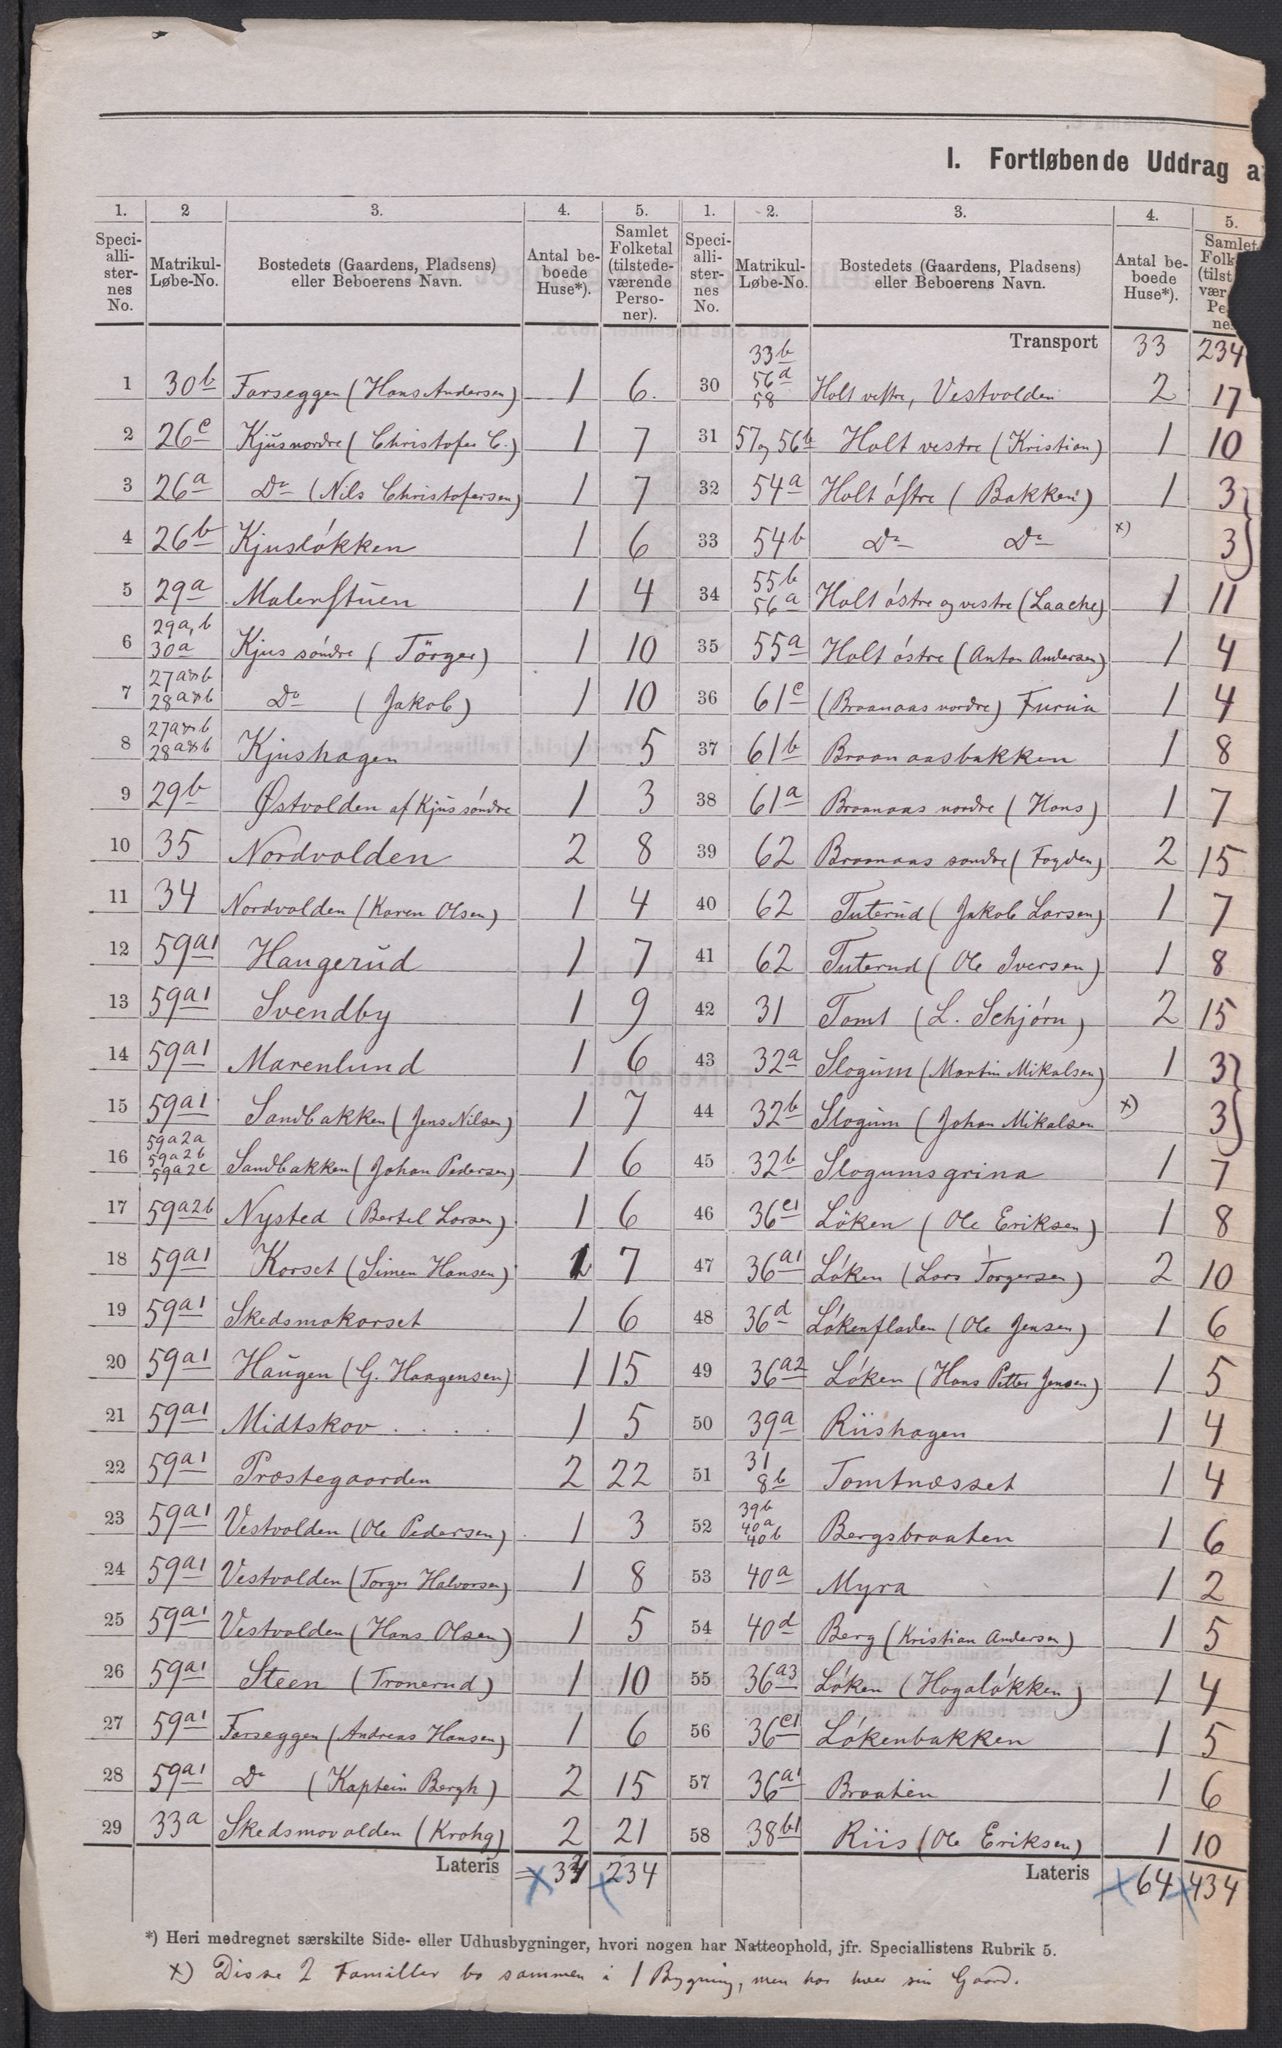 I. Fortløbende Uddrag a
1. 2 3. 4. 5. 1. 2. 3. 4. 5.
Speciallisternes No. Matrikul-Løbe-No. Bostedets (Gaardens, Pladsens) eller Beboerens Navn. Antal beboede Huse*). Samlet Folketal (tilstedeværende Personer). Speciallisternes No. Matrikul-Løbe-No. Bostedets (Gaardens, Pladsens) eller Beboerens Navn. Antal beboede Huse*). Samlet
1 30b Farseggen (Hans Andersen) 1 6.
2 26c Kjus nordre (Christofer C.) 1 7
3 26a Do (Nils Christofersen) 1 7
4 26b Kjusløkken 1 6
5 29a Malerstuen 1 4
6 29a,b 30a Kjus søndre (Törger) 1 10
7 27a&b 28a&b Do (Jakob) 1 10
8 27a&b 28a&b Kjushagen 1 5
9 29b Østvolden af Kjus søndre 1 3
10 35 Nordvolden 2 8
11 34 Nordvolden (Karen Olsen) 1 4
12 59a1 Haugerud 1 7
13 59a1 Svendby 1 9
14 59a1 Marenlund 1 6
15 59a1 Sandbakken (Jens Nilsen) 1 7
16 59a2a 59a2b 59a2c Sandbakken (Johan Pedersen) 1 6
17 59a2b Nysted (Bertel Larsen) 1 6
18 59a1 Korset (Simen Hansen) 1 7
19 59a1 Skedsmokorset 1 6
20 59a1 Haugen (G. Haagensen) 1 15
21 59a1 Midtskov . . . . 1 5
22 59a1 Præstegaarden 2 22
23 59a1 Vestvolden (Ole Pedersen) 1 3
24 59a1 Vestvolden (Torger Halvorsen) 1 8
25 59a1 Vestvolden (Hans Olsen) 1 5
26 59a1 Steen (Tronerud) 1 10
27 59a1 Farseggen (Andreas Hansen) 1 6
28 59a1 Do (Kaptein Bergh) 2 15
29 33a Skedsmovolden (Krohg) 2 21
Lateris 234
Transport 33 234
30 33b 56d 58 Holt vestre, Vestvolden 2 17
31 57 og 56b Holt vestre (Kristian) 1 10
32 54a Holt østre (Bakken) 1 3
33 54b Do Do x) 3
34 55b 56a Holt østre og vestre (Laache) 1 11
35 55a Holt østre (Anton Andersen) 1 4
36 61c (Braanaas nordre) Furua 1 4
37 61b Braanaasbakken 1 8
38 61a Braanaas nordre (Hans) 1 7
39 62 Braanaas søndre (Fogden) 2 15
40 62 Tuterud (Jakob Larsen) 1 7
41 62 Tuterud (Ole Iversen) 1 8
42 31 Tomt (L. Schjørn) 2 15
43 32a Slogum (Martin Mikalsen) 1 3
44 32b Slogum (Johan Mikalsen x) 3
45 32b Slogumsgrina 1 7
46 36c1 Løken (Ole Eriksen) 1 8
47 36a1 Løken (Lars Torgersen) 2 10
48 36d Løkenfladen (Ole Jensen) 1 6
49 36a2 Løken (Hans Petter Jensen) 1 5
50 39a Riishagen 1 4
51 31 8b Tomtnæsset 1 4
52 39b 40a 40b Bergsbraaten 1 6
53 40a Myra 1 2
54 40d Berg (Kristian Andersen) 1 5
55 36a3 Løken (Hagaløkken) 1 4
56 36c1 Løkenbakken 1 5
57 36a1 Braaten 1 6
58 38b1 Riis (Ole Eriksen) 1 10
Lateris 64 434
*) Heri medregnet særskilte Side- eller Udhusbygninger, hvori nogen har Natteophold, jfr. Speciallistens Rubrik 5.
x) Disse 2 Familier bo sammen i 1 Bygning, men har hver sin Gaard.